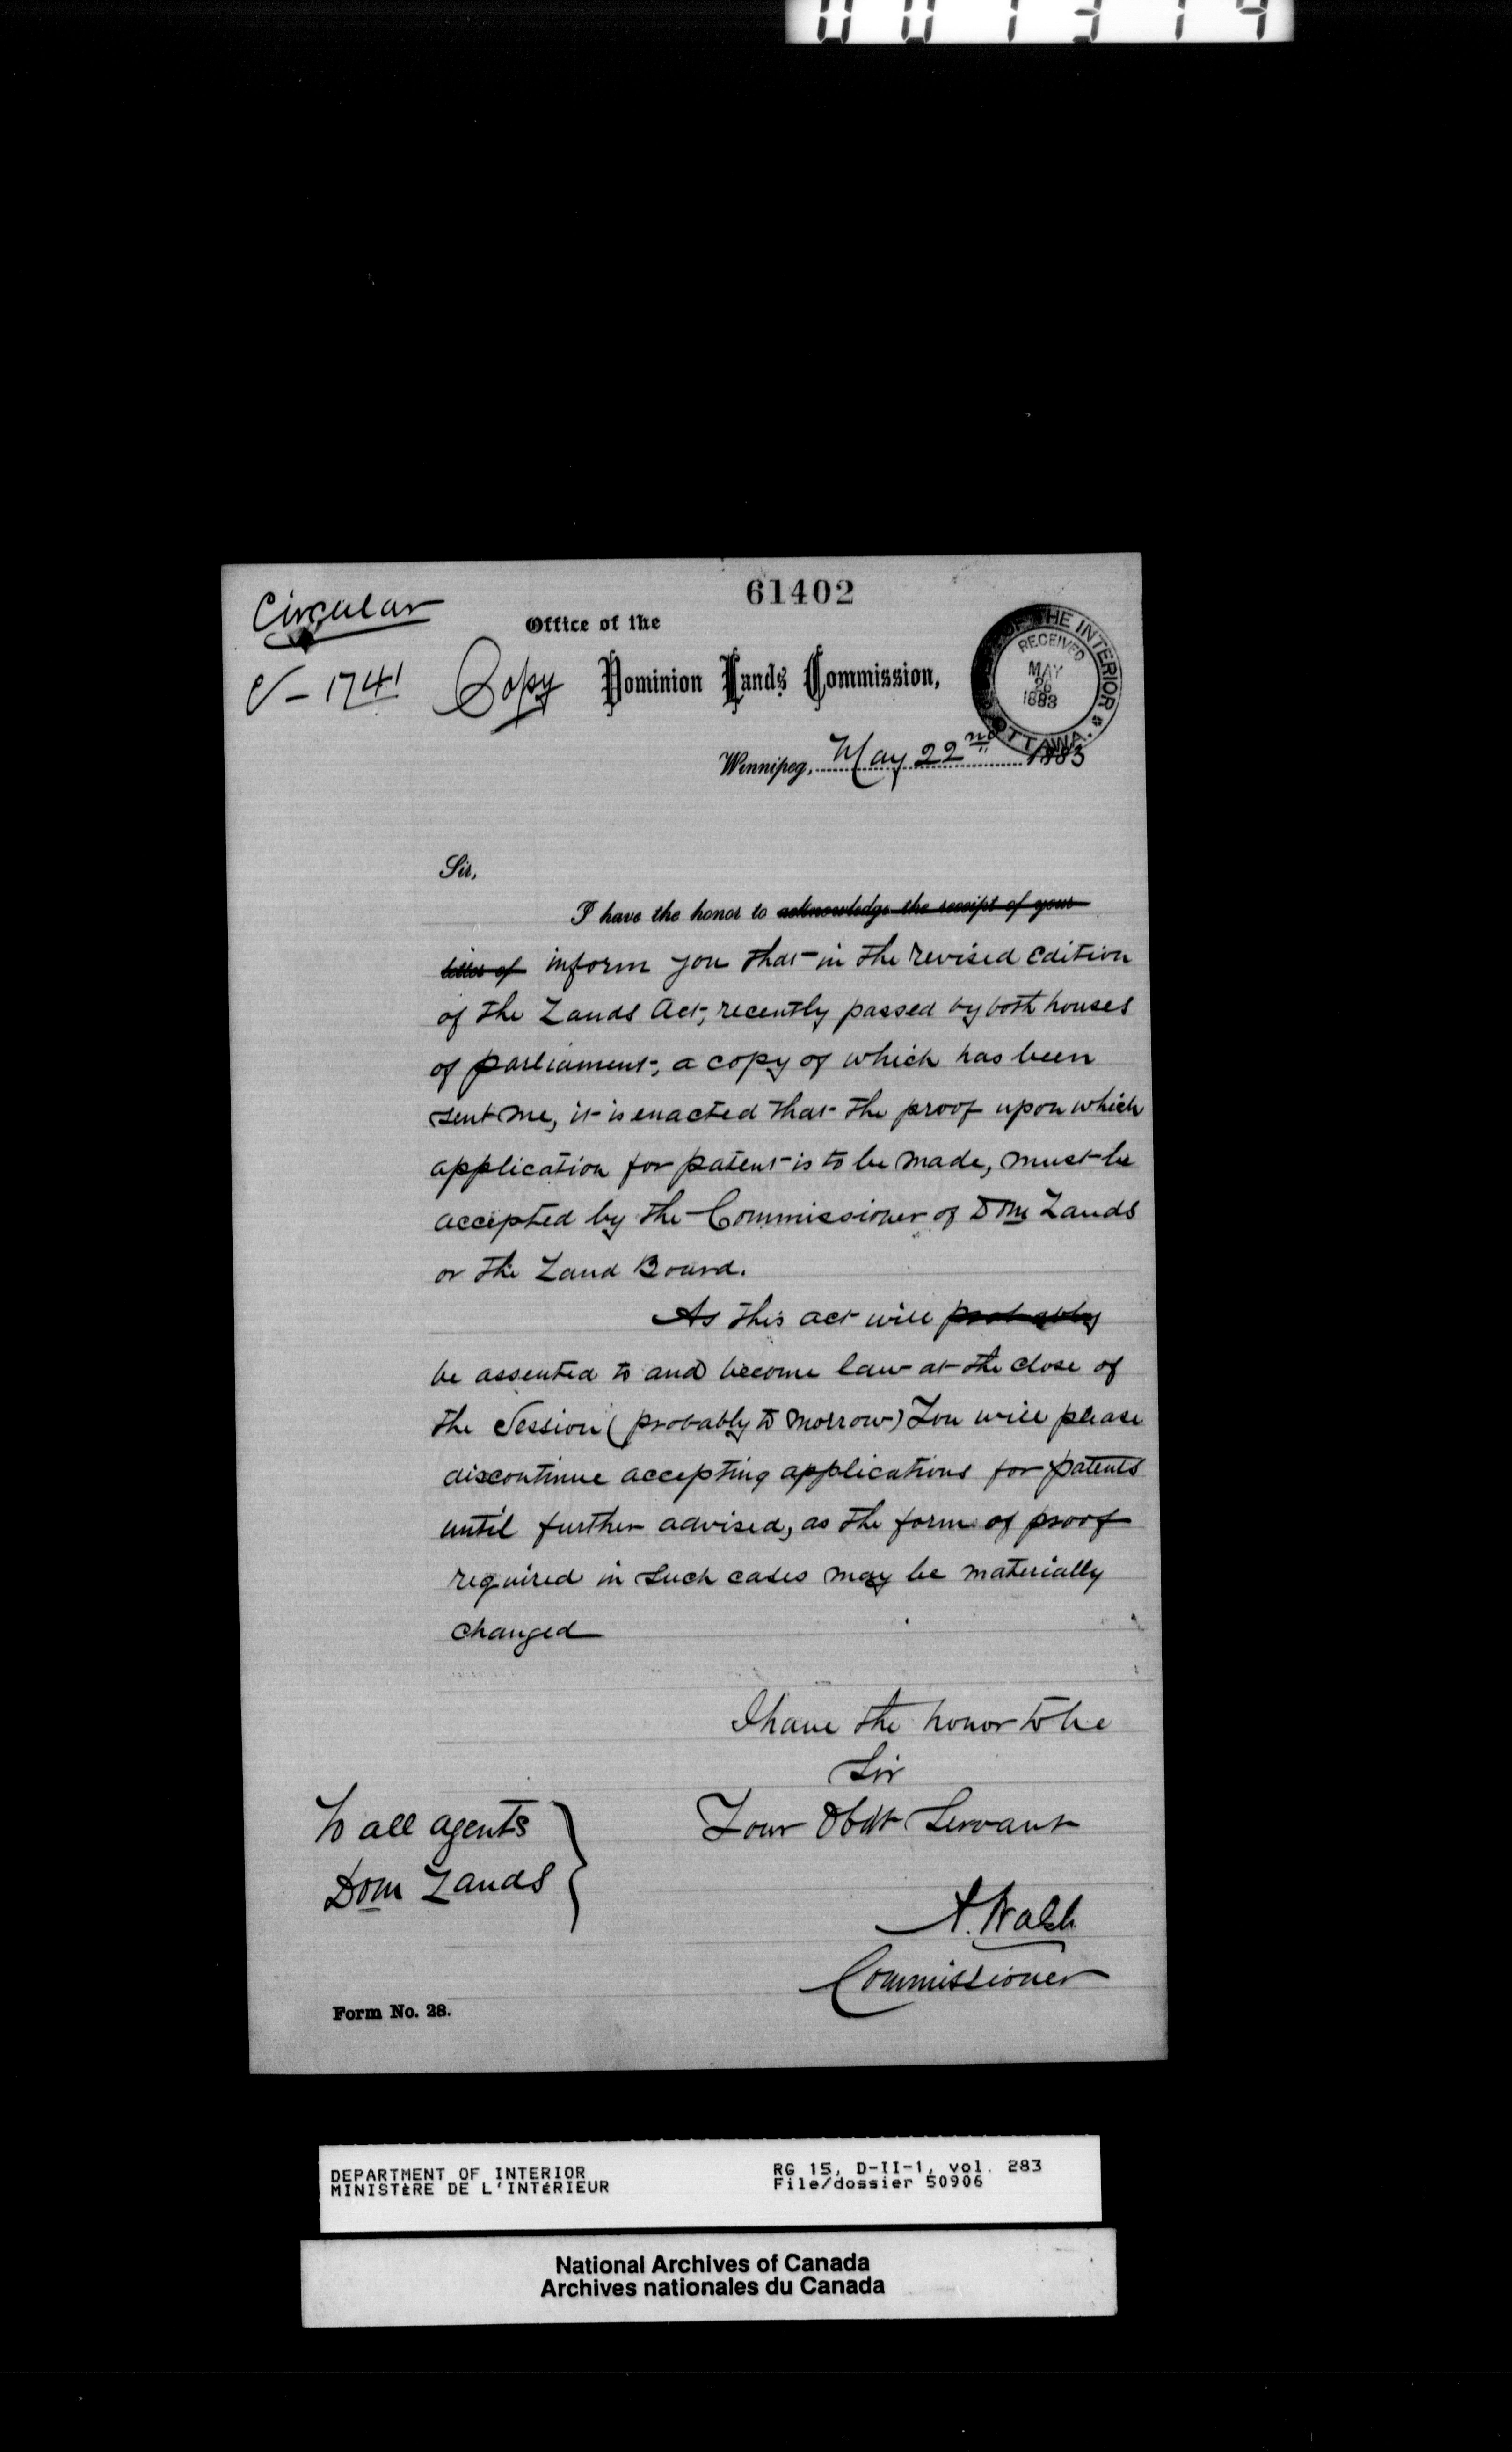 001314
61402
Circular
Office of the
V-1741
Copy
Dominion Lands Commission,
OF THE INTERIOR
RECEIVED
MAY
26
1883
OTTAWA.
Winnipeg, May 22nd 1883
Sir,
I have the honor to acknowledge the receipt of your
letter of inform you that in the revised edition
of the Lands Act, recently passed by both houses
of parliament, a copy of which has been
sent me, it is enacted that the proof upon which
application for patent is to be made, must be
accepted by the Commissioner of Dom Lands
or the Land Board.
As this act will probably
be assented to and become law at the close of
the Session (probably to morrow) You will please
discontinue accepting applications for patents
until further advised, as the form of proof
required in such cases may be materially
changed
I have the honor to be
Sir
Your Obdt Servant
To all agents
Dom Lands
A. Walsh
Commissioner
Form No. 28.
DEPARTMENT OF INTERIOR
MINISTÈRE DE L'INTÉRIEUR
RG 15, D-II-1, vol. 283
File/dossier 50906
National Archives of Canada
Archives nationales du Canada